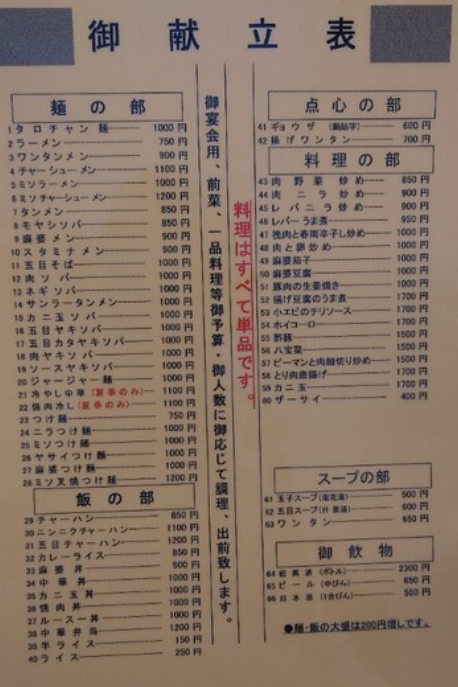 御献立表
麺の部
1 タロチャン麺 1000円
2 ラーメン 750円
3 ワンタンメン 900円
4 チャーシューメン 1100円
5 ミソラーメン 1000円
6 ミソチャーシューメン 1200円
7 タンメン 850円
8 モヤシソバ 850円
9 麻婆メン 900円
10 スタミナメン 900円
11 五目そば 1000円
12 肉ソバ 1000円
13 ネギソバ 1000円
14 サンラータンメン 1000円
15 カニ玉ソバ 1000円
16 五目ヤキソバ 1000円
17 五目カタヤキソバ 1000円
18 肉ヤキソバ 1000円
19 ソースヤキソバ 1000円
20 ジャージャー麺 1000円
21 冷やし中華(夏季のみ) 1100円
22 焼肉冷し(夏季のみ) 1100円
23 つけ麺 750円
24 ニラつけ麺 1000円
25 ミソつけ麺 1000円
26 ヤサイつけ麺 1000円
27 麻婆つけ麺 1000円
28 ミソ叉焼つけ麺 1200円
飯の部
29 チャーハン 850円
30 ニンニクチャーハン 1100円
31 五目チャーハン 1200円
32 カレーライス 850円
33 麻婆丼 900円
34 中華丼 1000円
35 カニ玉丼 1000円
36 焼肉丼 1000円
37 ルースー丼 1000円
38 中華弁当 1200円
39 半ライス 150円
40 ライス 250円
御宴会用、前菜、一品料理等御予算・御人数に御応じて調理、出前致します。
料理はすべて単品です。
点心の部
41 ギョウザ 600円
42 揚げワンタン 700円
料理の部
43 肉野菜炒め 850円
44 肉ニラ炒め 900円
45 レバニラ炒め 900円
46 レバーうま煮 950円
47 挽肉と春雨辛子炒め 1000円
48 肉と卵炒め 1000円
49 麻婆茄子 1000円
50 麻婆豆腐 1000円
51 豚肉の生姜焼き 1000円
52 揚げ豆腐のうま煮 1700円
53 小エビのチリソース 1700円
54 ホイコーロ 1700円
55 酢豚 1500円
56 八宝菜 1500円
57 ピーマンと肉細切り炒め 1500円
58 とり肉唐揚げ 1700円
59 カニ玉 1700円
60 ザーサイ 400円
スープの部
61 玉子スープ 500円
62 五目スープ 600円
63 ワンタン 650円
御飲物
64 紹興酒(ボトル) 2300円
65 ビール(中びん) 650円
66 日本酒(1合びん) 550円
●麺・飯の大盛は200円増しです。